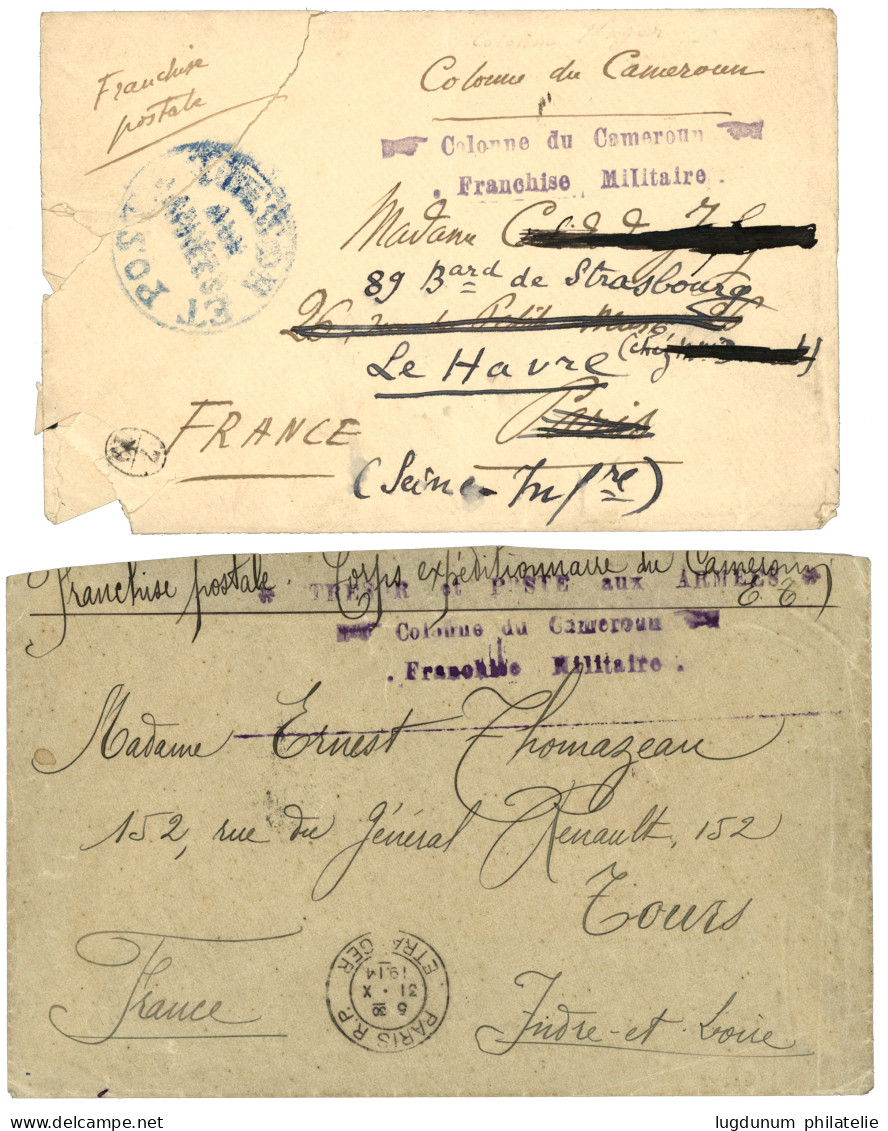 Franchise
postale
Colonne du Cameroun
Colonne du Cameroun
. Franchise Militaire .
TRESOR ET POSTES
AUX
ARMÉES
Madame
89 Bard de Strasbourg
26, rue du Petit Musc
Le Havre (chez
Paris
FRANCE
(Seine-Infre)
Franchise postale. Corps expéditionnaire du Cameroun
E. T.)
* TRESOR et POSTE aux ARMEES *
Colonne du Cameroun
. Franchise Militaire .
Madame Ernest Thomazeau
152, rue du Général Renault, 152
Tours
France
Indre-et-Loire
PARIS R.P.
6 30
31 . X
1914
ETRANGER
lugdunum philatelie